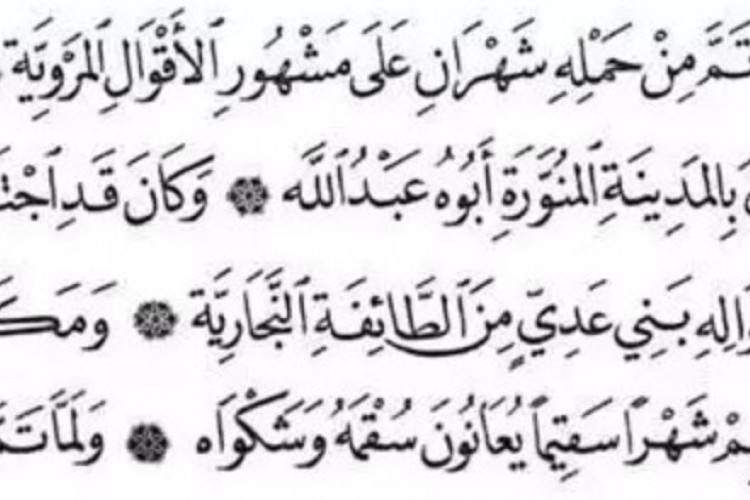 تَمَّ مِنْ حَمْلِهِ شَهْرَانِ عَلَى مَشْهُورِ ٱلْأَقْوَالِ ٱلْمَرْوِيَّةِ
بِالْمَدِينَةِ ٱلْمُنَوَّرَةِ أَبُوهُ عَبْدُ ٱللَّه ۞ وَكَانَ قَدِ ٱجْتَ
وَالِهِ بَنِي عَدِيٍّ مِنَ ٱلطَّائِفَةِ ٱلنَّجَّارِيَّة ۞ وَمَكَ
مْ شَهْرًا سَقِيمًا يُعَانُونَ سُقْمَهُ وَشَكْوَاه ۞ وَلَمَّا تَمَّ